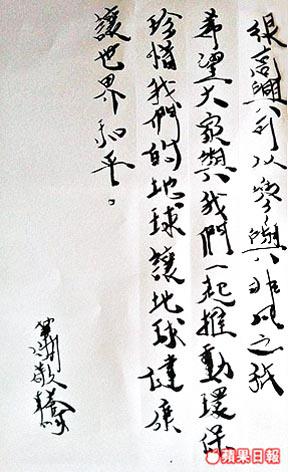 很高興可以參與非凡之旅
希望大家與我們一起推動環保
珍惜我們的地球讓地球健康
讓世界和平。
敬
蘋果日報